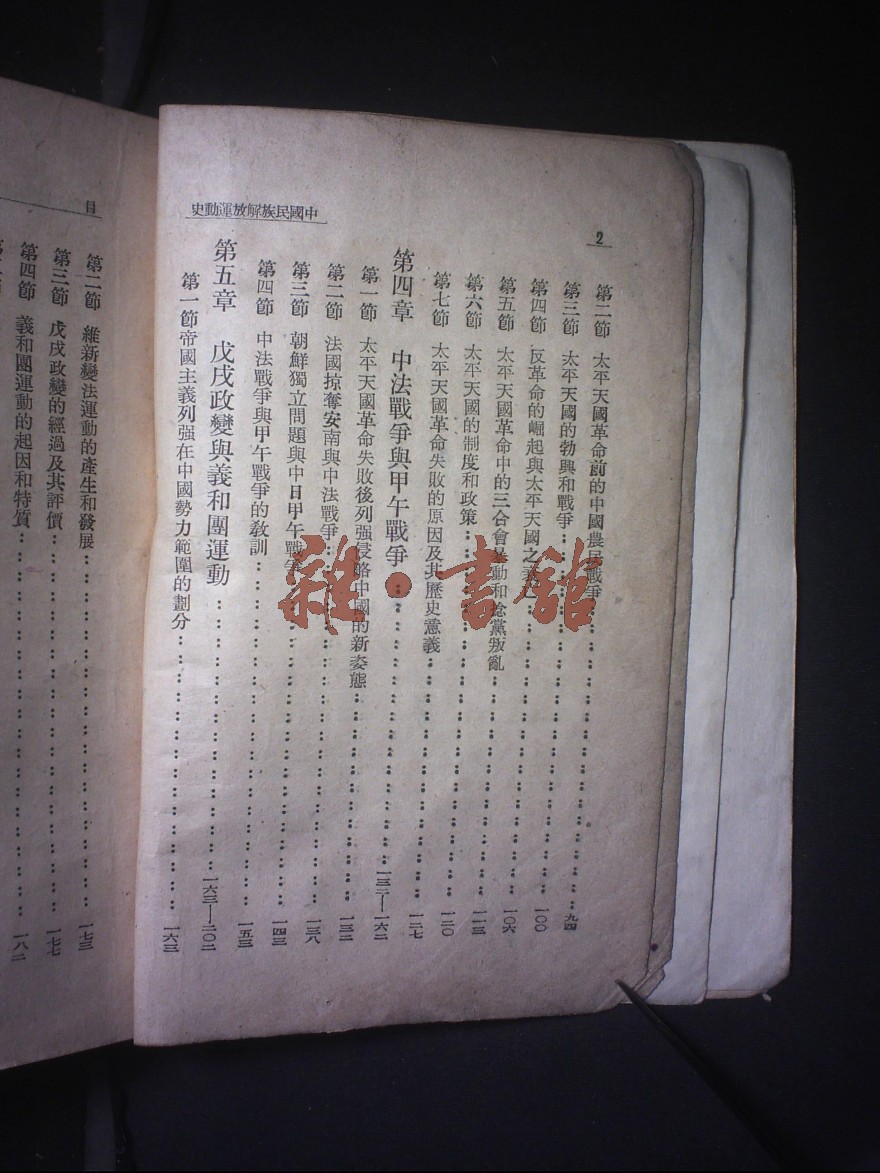 2
第二節 太平天國革命前的中國農民戰爭……九四
第三節 太平天國的勃興和戰爭……一〇〇
第四節 反革命的崛起與太平天國之
第五節 太平天國革命中的三合會暴動和捻黨叛亂……一〇六
第六節 太平天國的制度和政策……一一三
第七節 太平天國革命失敗的原因及其歷史意義……一二〇
一二七
第四章 中法戰爭與甲午戰爭……一三二—一六二
第一節 太平天國革命失敗後列强侵略中國的新姿態……一三二
第二節 法國掠奪安南與中法戰爭……一三八
第三節 朝鮮獨立問題與中日甲午戰爭……一四三
第四節 中法戰爭與甲午戰爭的敎訓……一五三
第五章 戊戌政變與義和團運動……一六三—二〇二
第一節 帝國主義列强在中國勢力範圍的劃分……一六三
中國民族解放運動史
目
第二節 維新變法運動的產生和發展……一七三
第三節 戊戌政變的經過及其評價……一七七
第四節 義和團運動的起因和特質……一八二
雜·書館